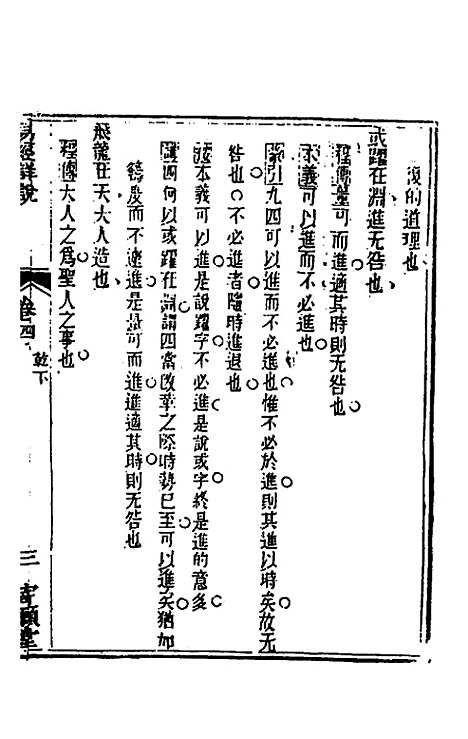 復的道理也
或躍在淵進无咎也
程傳量可而進適其時則无咎也
本義可以進而不必進也
蒙引九四可以進而不必進也惟不必於進則其進以時矣故无
咎也○不必進者隨時進退也
按本義可以進是說躍字不必進是說或字終是進的意多
講四何以或躍在淵謂四當改革之際時勢已至可以進矣猶如
鶴
而不遽進是量可而進進適其時則无咎也
飛龍在天大人造也
程傳大人之為聖人之事也
易經詳說
卷四
乾下
三
寄願堂